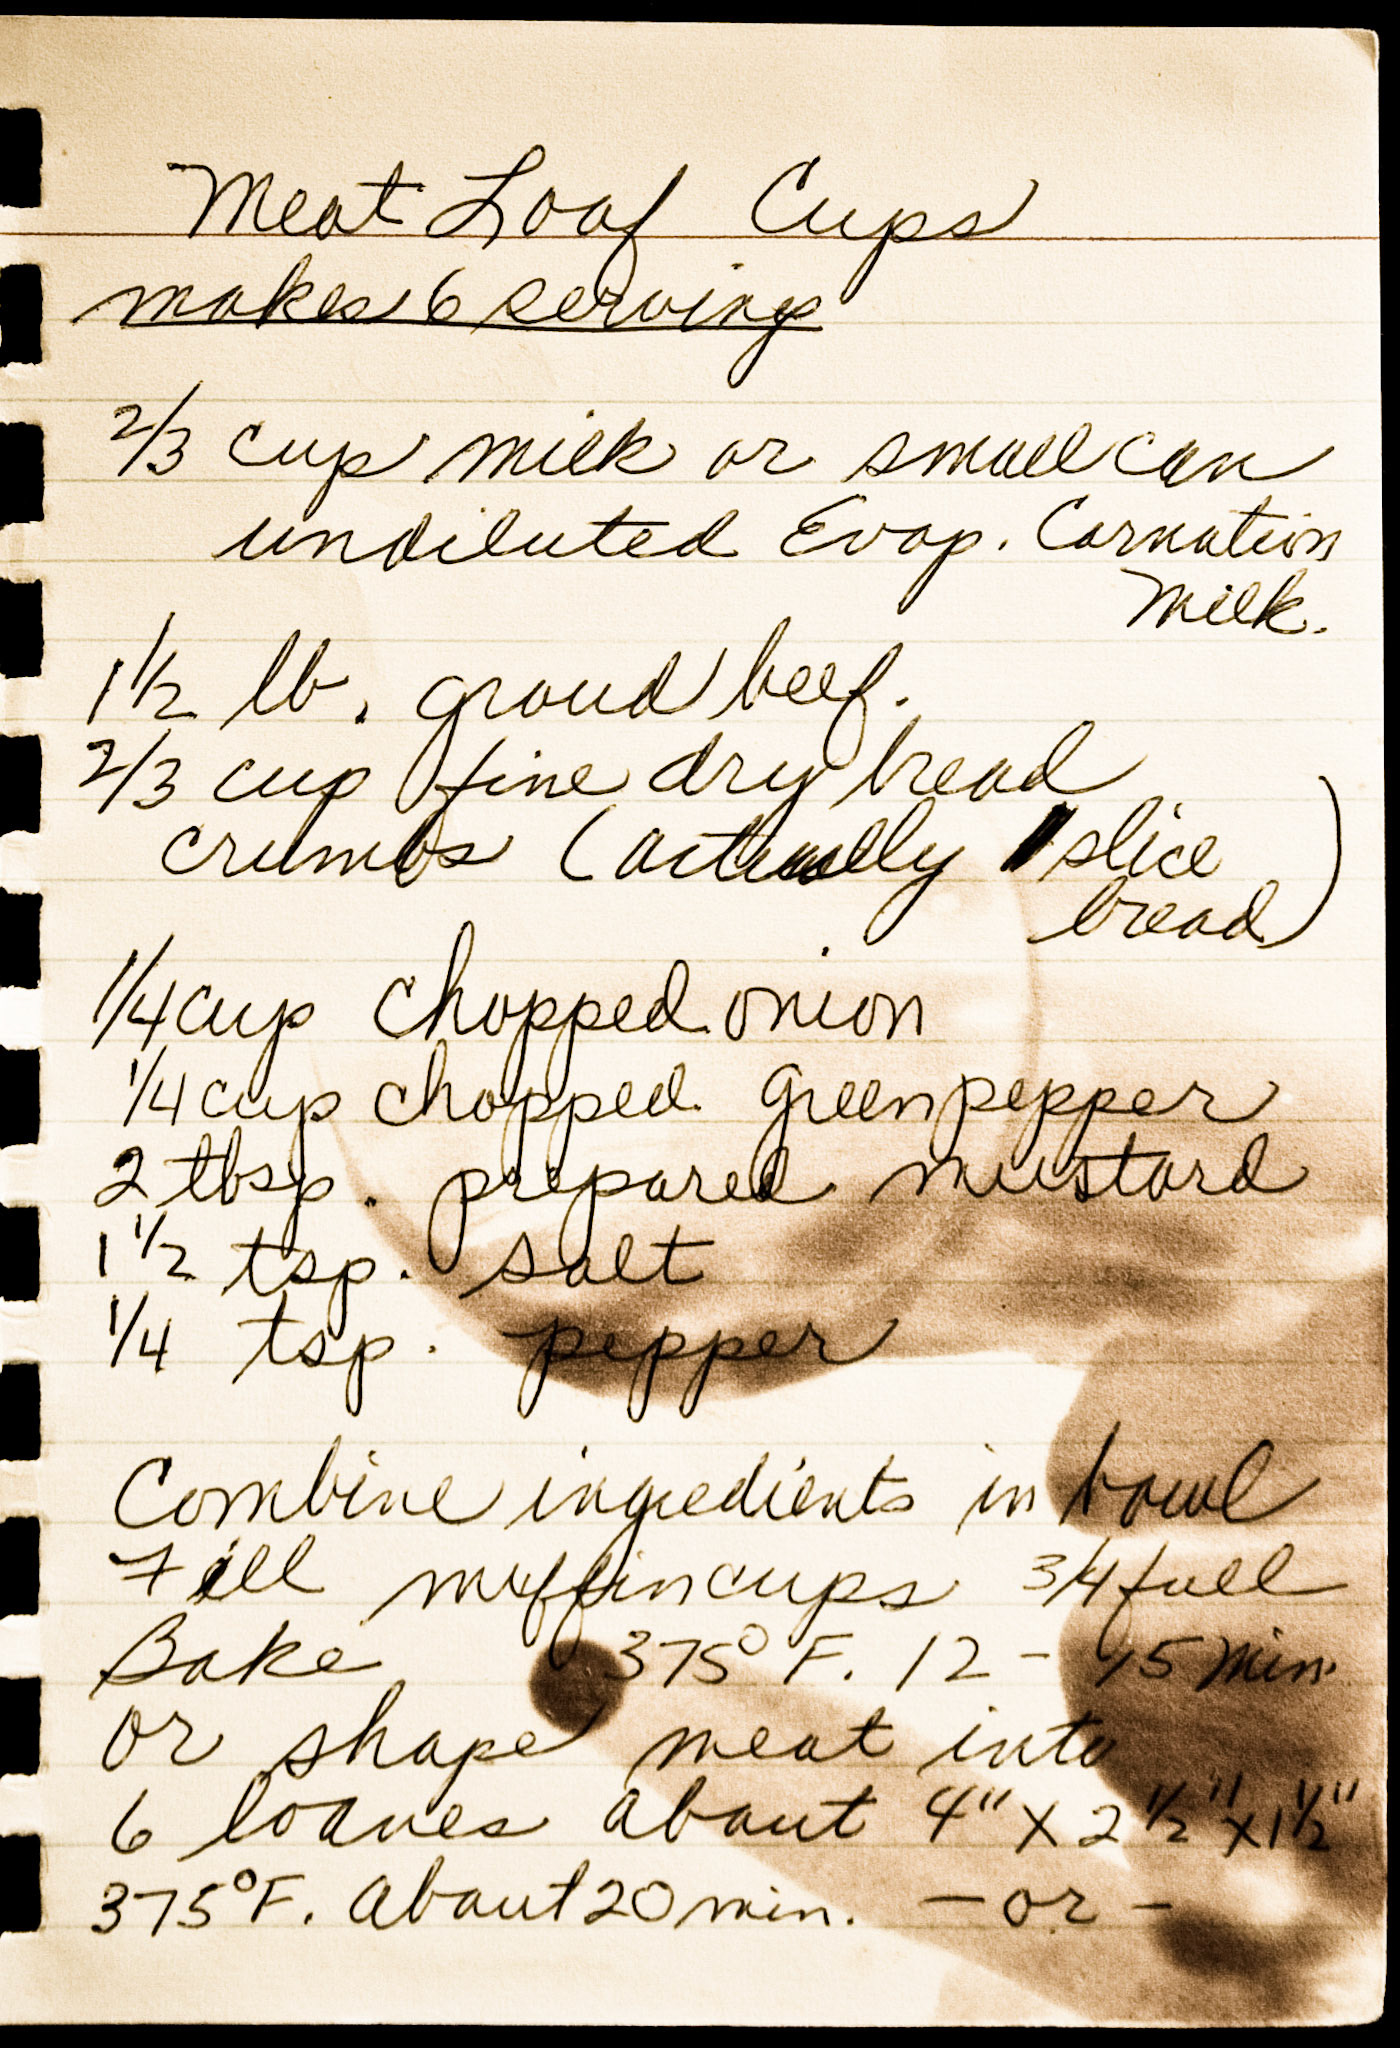 Meat Loaf Cups
makes 6 servings
2/3 cup milk or small can
undiluted Evap. Carnation
Milk.
1 1/2 lb. groud beef.
2/3 cup fine dry bread
crumbs (actually 1 slice
bread)
1/4 cup chopped onion
1/4 cup chopped green pepper
2 tbsp. prepared mustard
1 1/2 tsp. salt
1/4 tsp. pepper
Combine ingredients in bowl
Fill muffin cups 3/4 full
Bake 375° F. 12 - 15 min.
or shape meat into
6 loaves about 4" X 2 1/2" X 1 1/2"
375° F. about 20 min. - or -